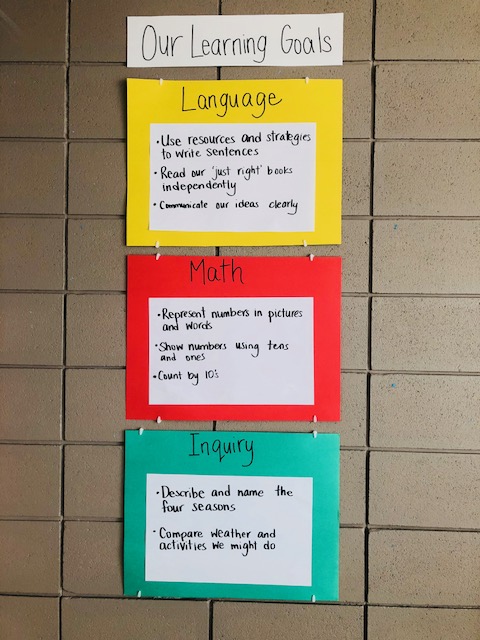 Our Learning Goals
Language
• Use resources and strategies
to write sentences
• Read our 'just right' books
independently
• Communicate our ideas clearly
Math
• Represent numbers in pictures
and words
• Show numbers using tens
and ones
• Count by 10's
Inquiry
• Describe and name the
four seasons
• Compare weather and
activities we might do